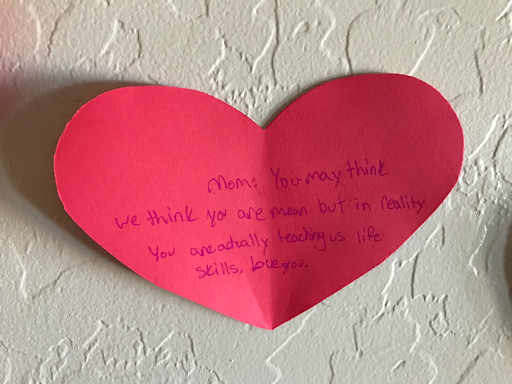 Mom: You may think
we think you are mean but in reality
You are actually teaching us life
skills. love you.